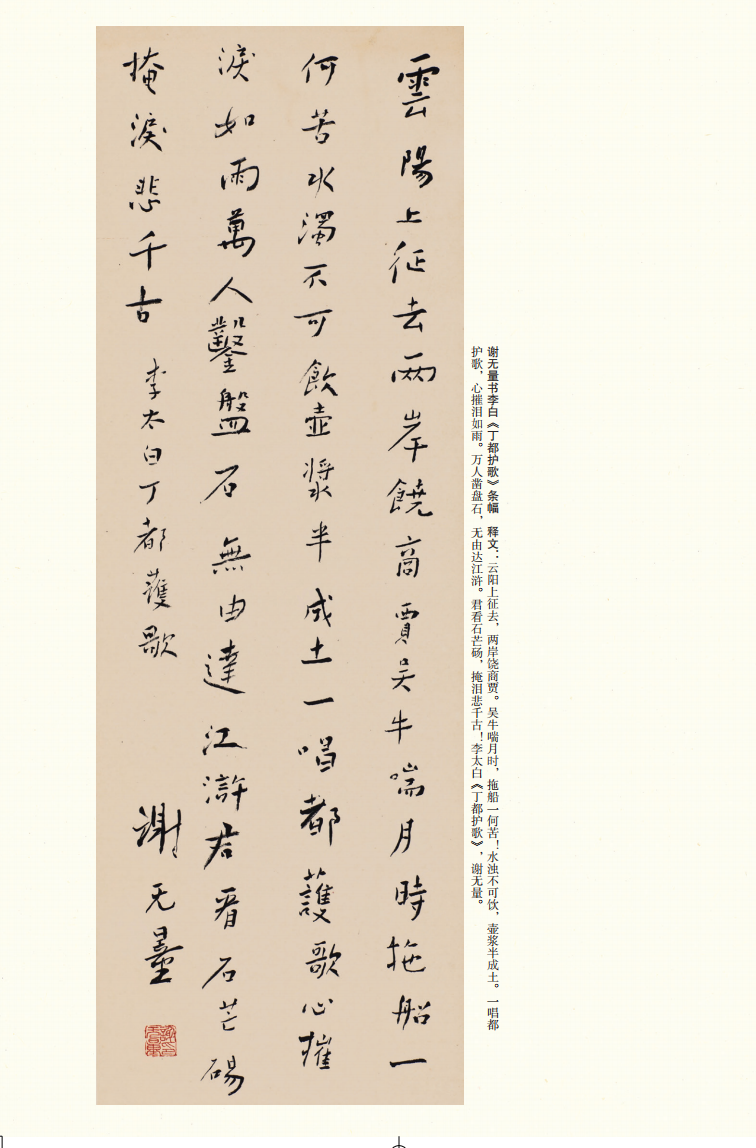 谢无量书李白《丁都护歌》条幅　释文：云阳上征去，两岸饶商贾。吴牛喘月时，拖船一何苦！水浊不可饮，壶浆半成土。一唱都
护歌，心摧泪如雨。万人凿盘石，无由达江浒。君看石芒砀，掩泪悲千古！李太白《丁都护歌》，谢无量。
雲陽上征去兩岸饒商賈吴牛喘月時拖船一
何苦水濁不可飲壺漿半成土一唱都護歌心摧
淚如雨萬人鑿盤石無由達江滸君看石芒碭
掩淚悲千古 李太白丁都護歌
謝无量